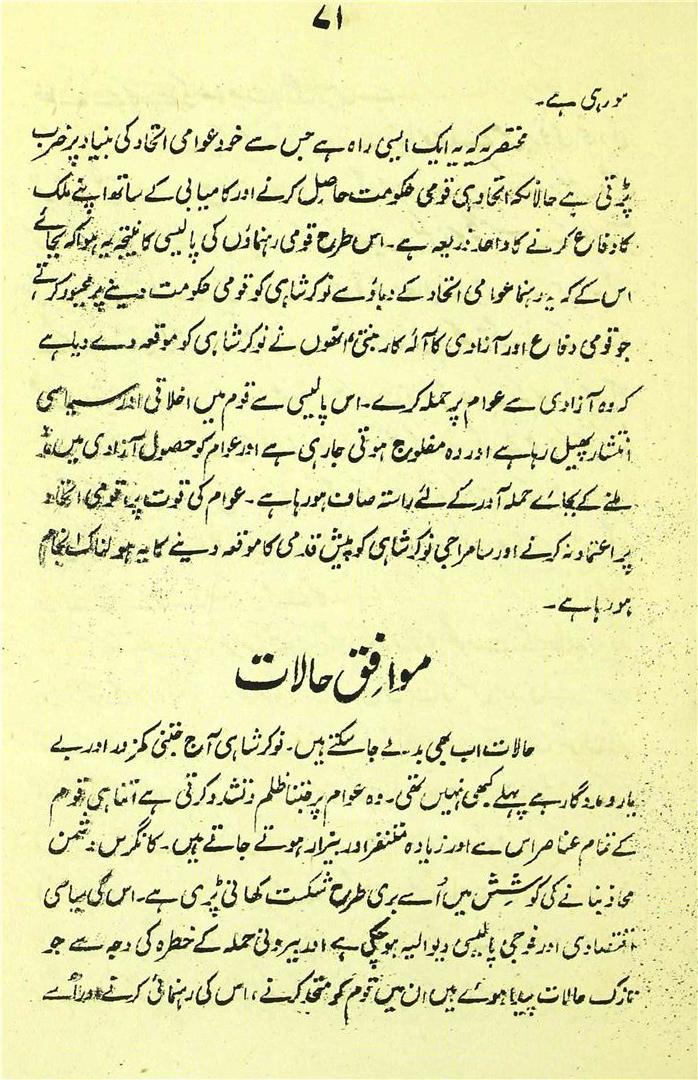 ۷۱
ہو رہی ہے۔
مختصر یہ کہ یہ ایک ایسی راہ ہے جس سے خود عوامی اتحاد کی بنیاد پر ضرب
پڑتی ہے حالانکہ اتحاد ہی قومی حکومت حاصل کرنے اور کامیابی کے ساتھ اپنے ملک
کا دفاع کرنے کا واحد ذریعہ ہے۔ اس طرح قومی رہنماؤں کی پالیسی کا نتیجہ یہ ہوا کہ بجائے
اس کے کہ یہ رہنما عوامی اتحاد کے دباؤ سے نوکر شاہی کو قومی حکومت دینے پر مجبور کرتے
جو قومی دفاع اور آزادی کا آلۂ کار بنتی، انھوں نے نوکر شاہی کو موقعہ دے دیا ہے
کہ وہ آزادی سے عوام پر حملہ کرے۔ اس پالیسی سے قوم میں اخلاقی اور سیاسی
انتشار پھیل رہا ہے اور وہ مفلوج ہوتی جا رہی ہے اور عوام کو حصول آزادی میں
ملنے کے بجائے حملہ آور کے لئے راستہ صاف ہو رہا ہے۔ عوام کی قوت پر، قومی اتحاد
پر اعتماد نہ کرنے اور سامراجی نوکر شاہی کو پیش قدمی کا موقعہ دینے کا یہ ہولناک انجام
ہو رہا ہے۔
موافق حالات
حالات اب بھی بدلے جا سکتے ہیں۔ نوکر شاہی آج جتنی کمزور اور بے
یار و مددگار ہے پہلے کبھی نہیں تھی۔ وہ عوام پر جتنا ظلم و تشدد کرتی ہے اتنا ہی قوم
کے تمام عناصر اس سے اور زیادہ متنفر اور بیزار ہوتے جاتے ہیں۔ کانگرس دشمن
محاذ بنانے کی کوشش میں اُسے بری طرح شکست کھانی پڑی ہے۔ اس کی سیاسی
اقتصادی اور فوجی پالیسی دیوالیہ ہو چکی ہے اور بیرونی حملہ کے خطرہ کی وجہ سے جو
نازک حالات پیدا ہوئے ہیں ان میں قوم کو متحد کرنے، اس کی رہنمائی کرنے اور اُسے